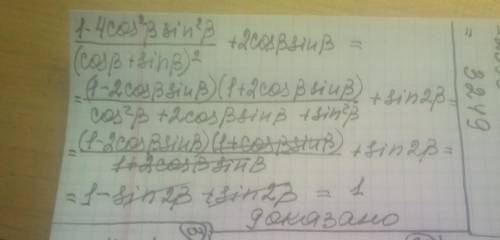 (1-4cos²β sin²β)/(cosβ + sinβ)² + 2cosβ sinβ =
= ((1-2cosβ sinβ)(1+2cosβ sinβ))/(cos²β + 2cosβ sinβ + sin²β) + sin2β =
= ((1-2cosβ sinβ)(1+cosβ sinβ))/(1+2cosβ sinβ) + sin2β =
= 1 - sin2β + sin2β = 1
доказано
3249
=